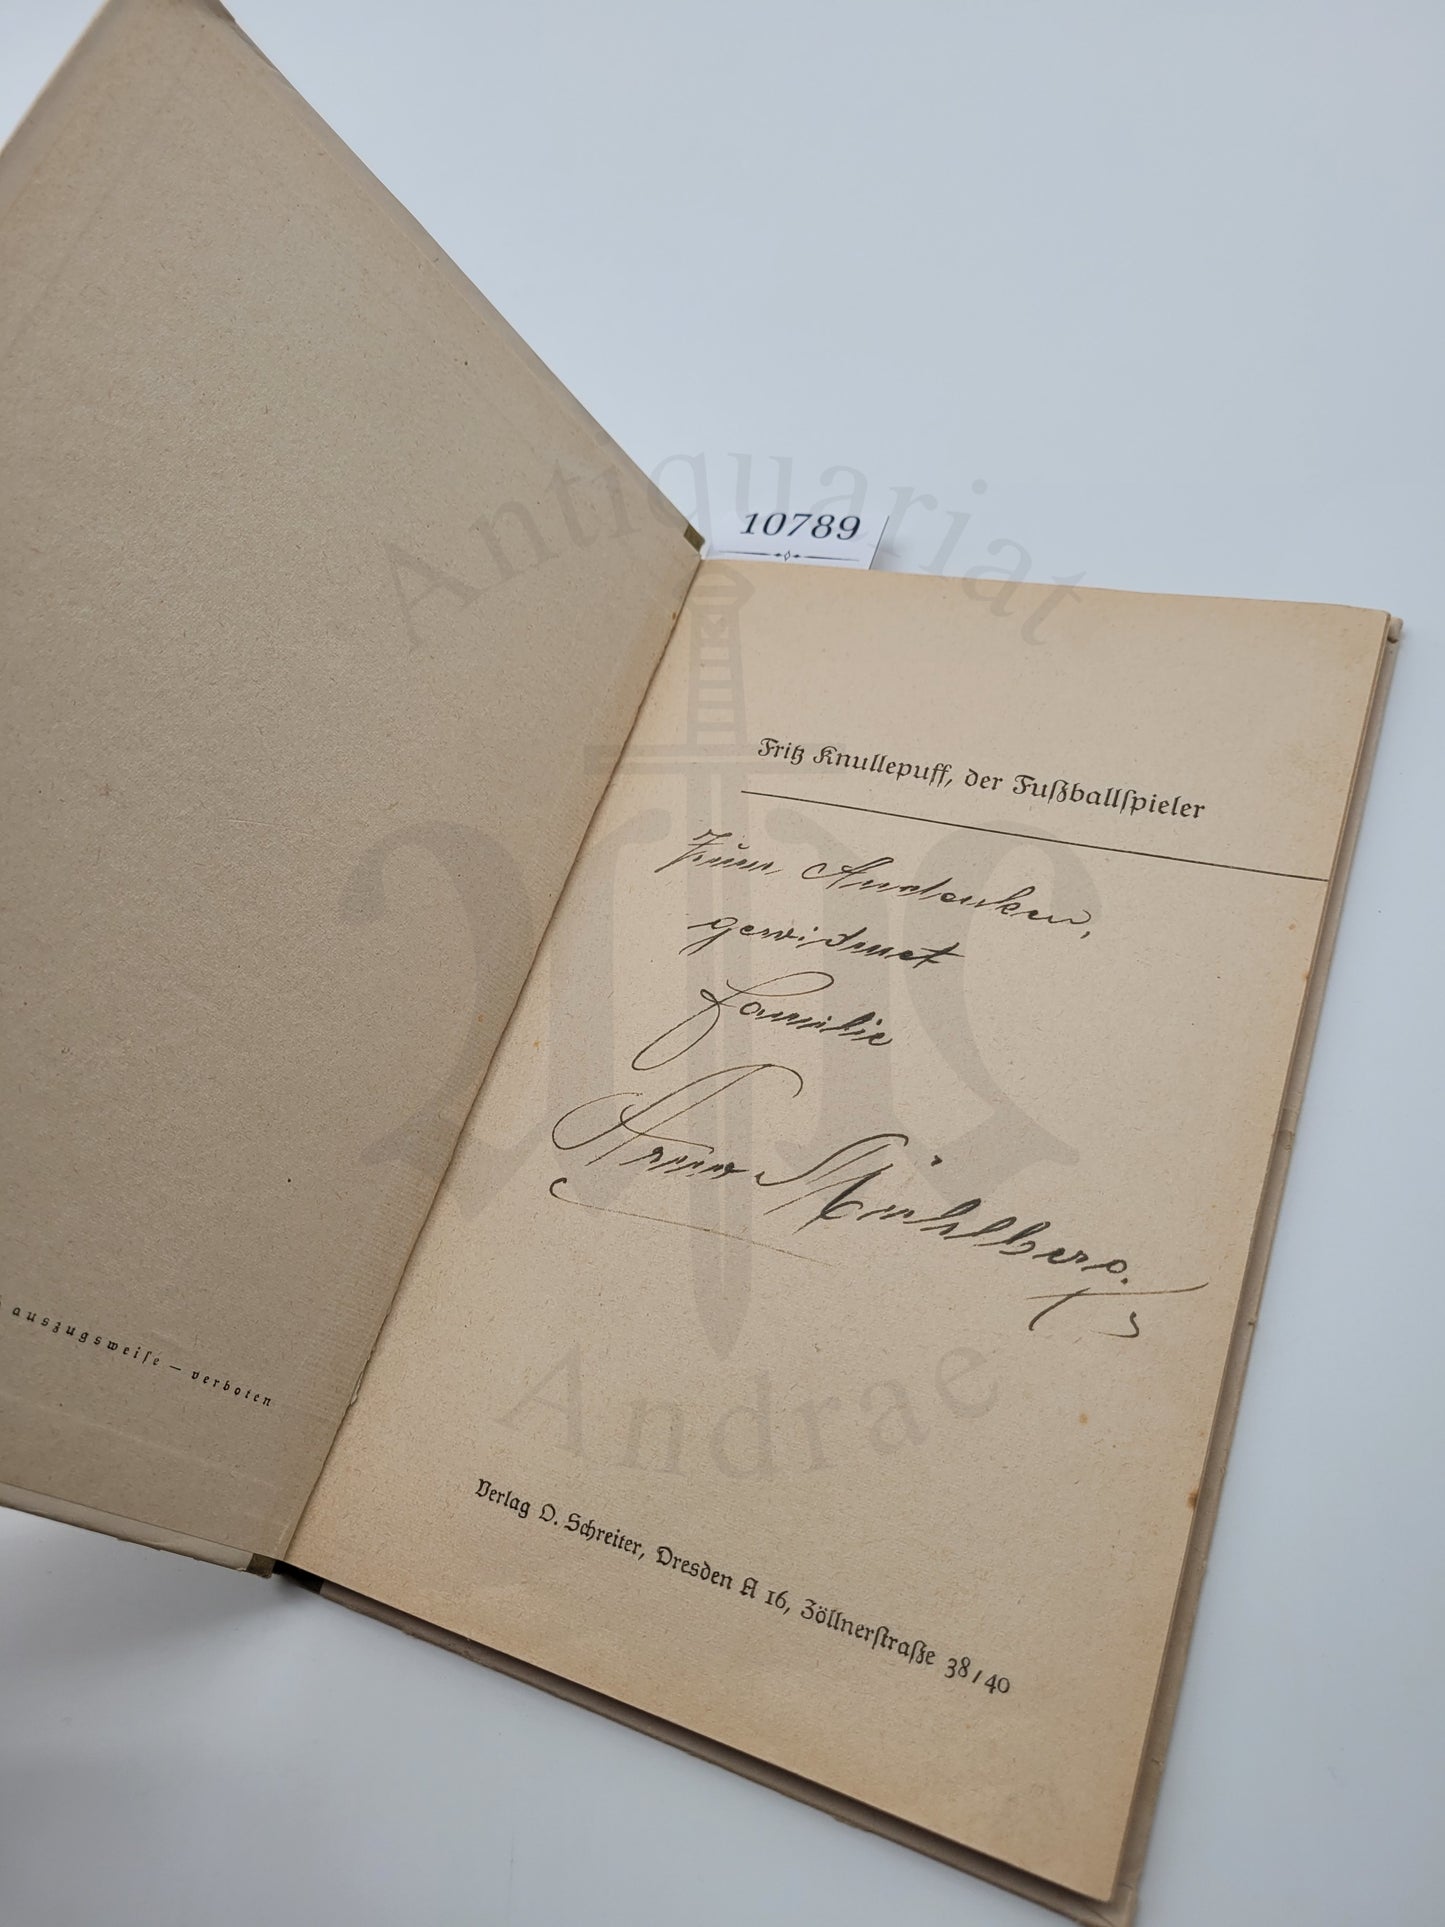 Antiquariat
10789
Fritz Knullepuff, der Fußballſpieler
Zum Andenken,
gewidmet
Familie
Mühlberg.
auszugsweiſe — verboten
Andrae
Verlag O. Schreiter, Dresden A 16, Zöllnerſtraße 38/40